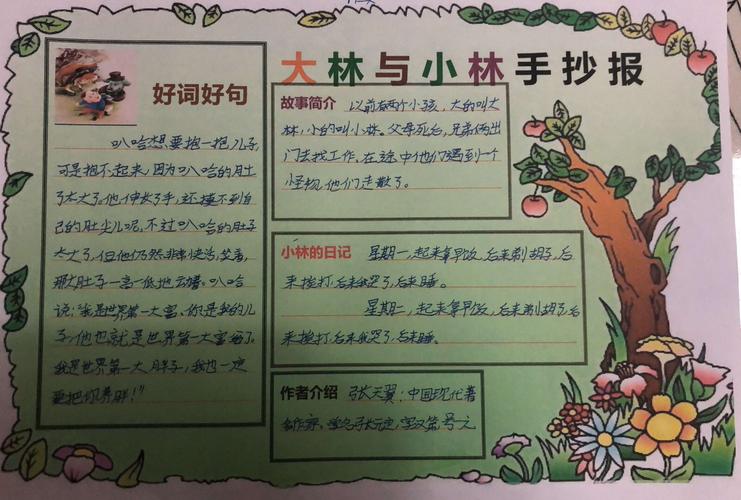 大林与小林手抄报
好词好句
叭哈想要抱一抱儿子,
可是抱不起来,因为叭哈的肚子
太大了。他伸长了手,还摸不到自
己的肚尖儿呢。不过叭哈的肚子
太大了,但他仍然非常快活,笑着,
那大肚子一高一低地动着。叭哈
说:“我是世界第一大富,你是我的儿
子,他也就是世界第一大富翁了。
我是世界第一大胖子,我也一定
要把你养胖!”
故事简介 以前有两个小孩,大的叫大
林,小的叫小林。父母死后,兄弟俩出
门去找工作。在途中他们遇到一个
怪物,他们走散了。
小林的日记 星期一,起来拿早饭,后来剃胡子,后
来挨打,后来我哭了,后来睡。
星期二,起来拿早饭,后来剃胡子,后
来挨打,后来我哭了,后来睡。
作者介绍 张天翼:中国现代著
名作家,学名张元定,字汉弟,号之